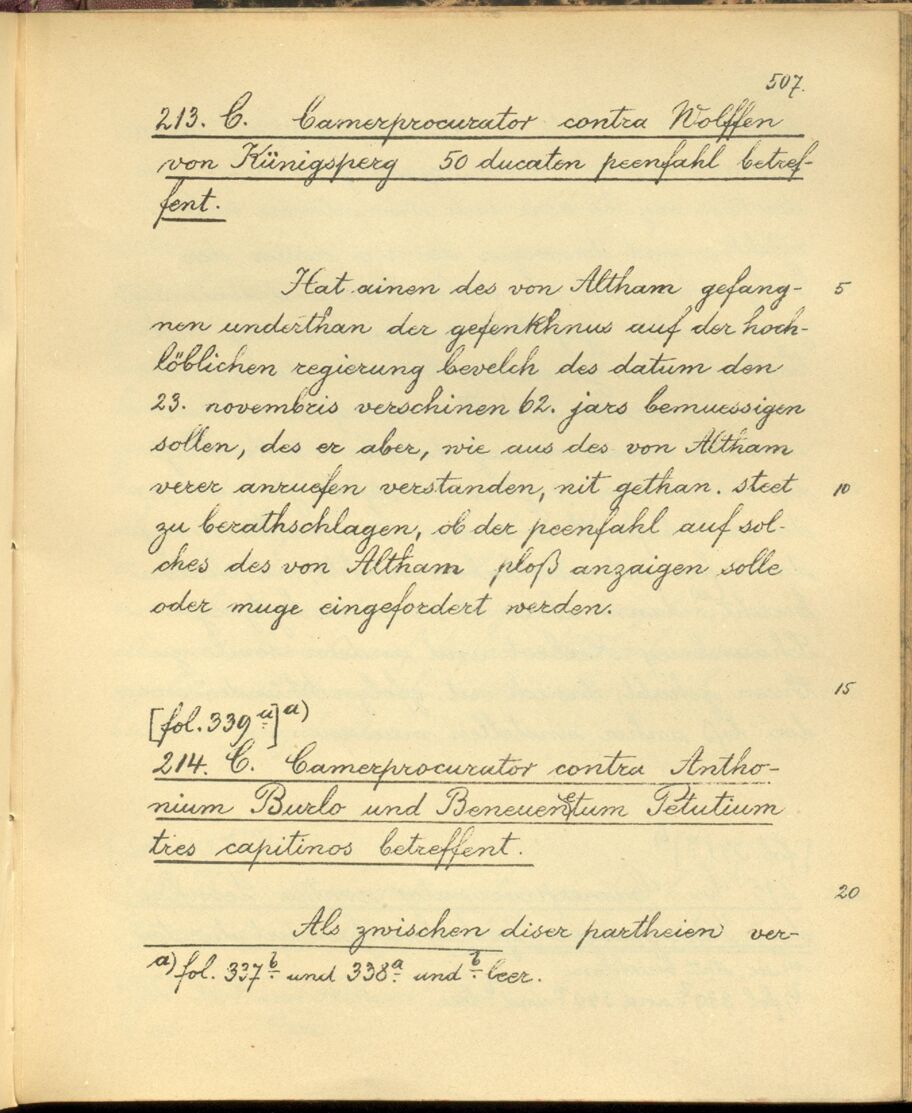 507.
213. C. Camerprocurator contra Wolffen
von Künigsperg 50 ducaten peenfahl betref-
fent.
Hat ainen des von Altham gefang- 5
nen underthan der gefenkhnus auf der hoch-
löblichen regierung bevelch des datum den
23. novembris verschinen 62. jars bemuessigen
sollen, des er aber, wie aus des von Altham
verer anruefen verstanden, nit gethan. steet 10
zu berathschlagen, ob der peenfahl auf sol-
ches des von Altham ploß anzaigen solle
oder muge eingefordert werden.
15
[fol. 339 a] a)
214. C. Camerprocurator contra Antho-
nium Burlo und Beneuentum Petutium
tres capitinos betreffent.
20
Als zwischen diser partheien ver-
a) fol. 337 b und 338 a und b leer.